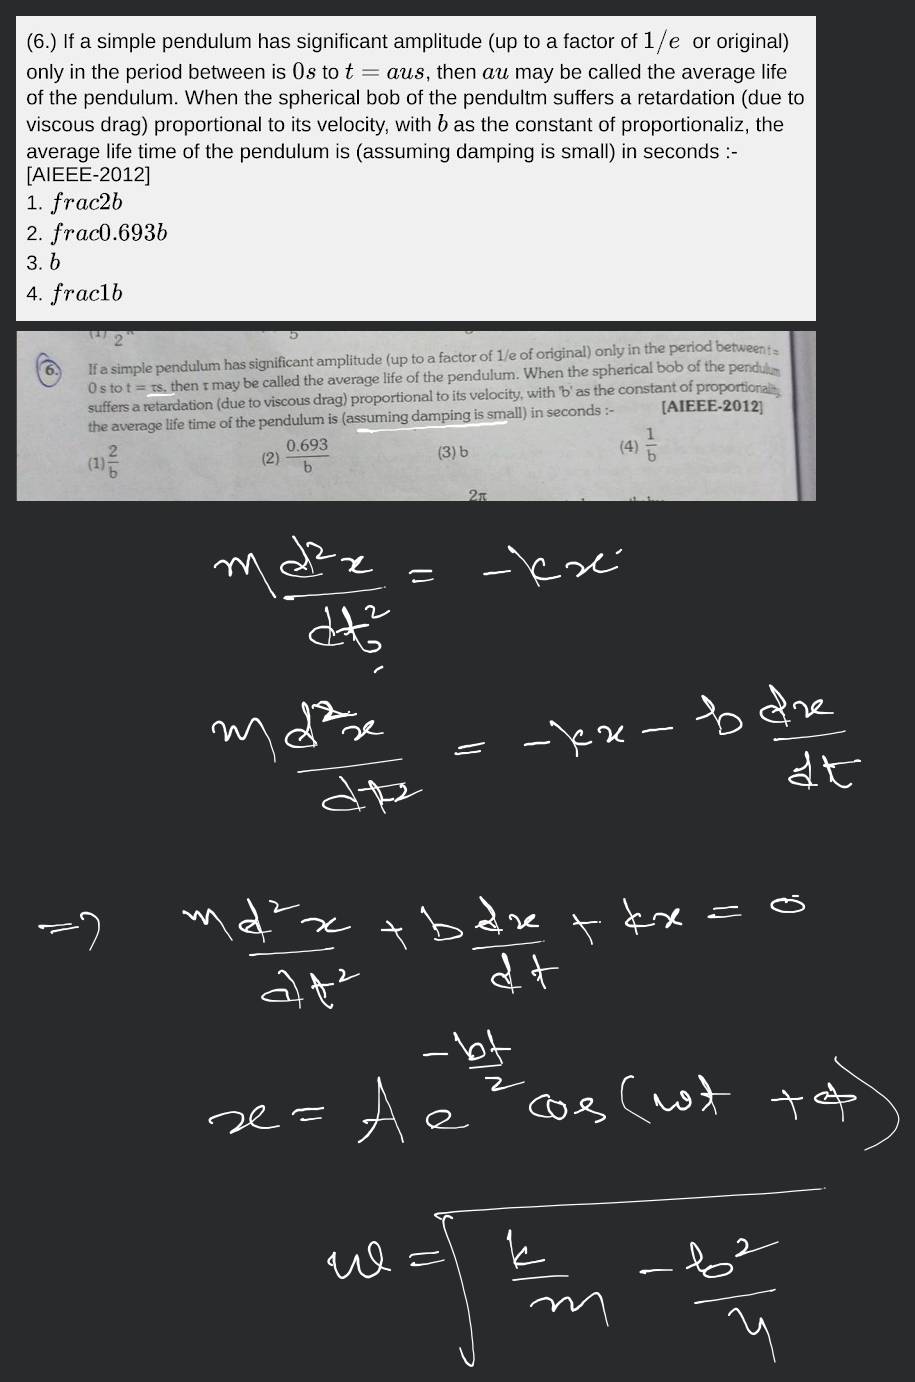 (6.) If a simple pendulum has significant amplitude (up to a factor of 1/e or original)
only in the period between is 0s to t = aus, then au may be called the average life
of the pendulum. When the spherical bob of the pendultm suffers a retardation (due to
viscous drag) proportional to its velocity, with b as the constant of proportionaliz, the
average life time of the pendulum is (assuming damping is small) in seconds :-
[AIEEE-2012]
1. frac2b
2. frac0.693b
3. b
4. frac1b
6. If a simple pendulum has significant amplitude (up to a factor of 1/e of original) only in the period between t=
0 s to t = τs, then τ may be called the average life of the pendulum. When the spherical bob of the pendulum
suffers a retardation (due to viscous drag) proportional to its velocity, with 'b' as the constant of proportionality,
the average life time of the pendulum is (assuming damping is small) in seconds :- [AIEEE-2012]
(1) 2/b (2) 0.693/b (3) b (4) 1/b
2π
m d²x/dt² = -kx
m d²x/dt² = -kx - b dx/dt
=> m d²x/dt² + b dx/dt + kx = 0
x = A e^(-bt/2) cos(wt + φ)
w = √(k/m - b²/4)